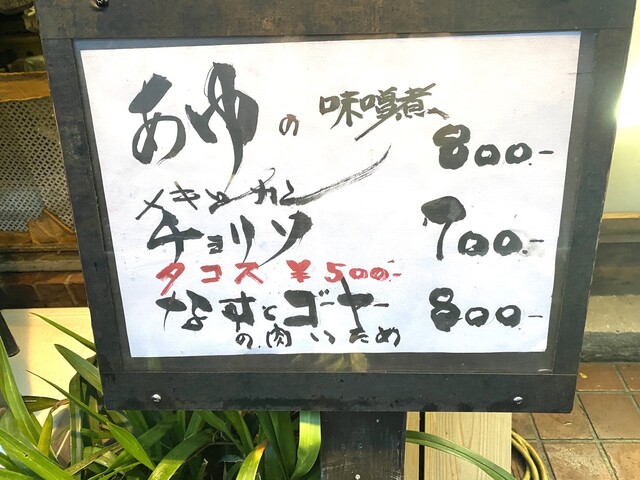 あゆの味噌煮 800.-
メキシカン
チョリソ 700.-
タコス ¥500.-
なすとゴーヤー 800-
の肉いため